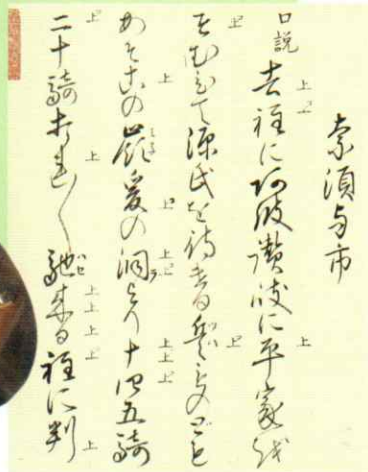 奈須与市
口説 去程に阿波讃岐に平家を
そむひて源氏を待ける兵ものども
あそこの嶺爰の洞より十四五騎
二十騎打連〱馳来る程に判